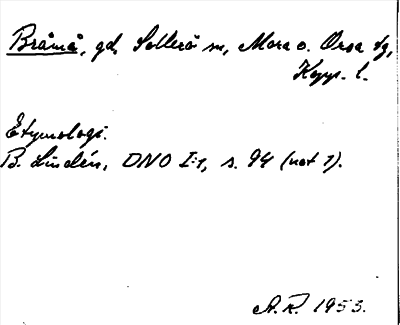 Bråmå, gd, Sollerö sn, Mora o. Orsa tg,
Kopp. l.
Etymologi.
B. Lindén, DNO I:1, s. 94 (not 1).
A.R. 1953.